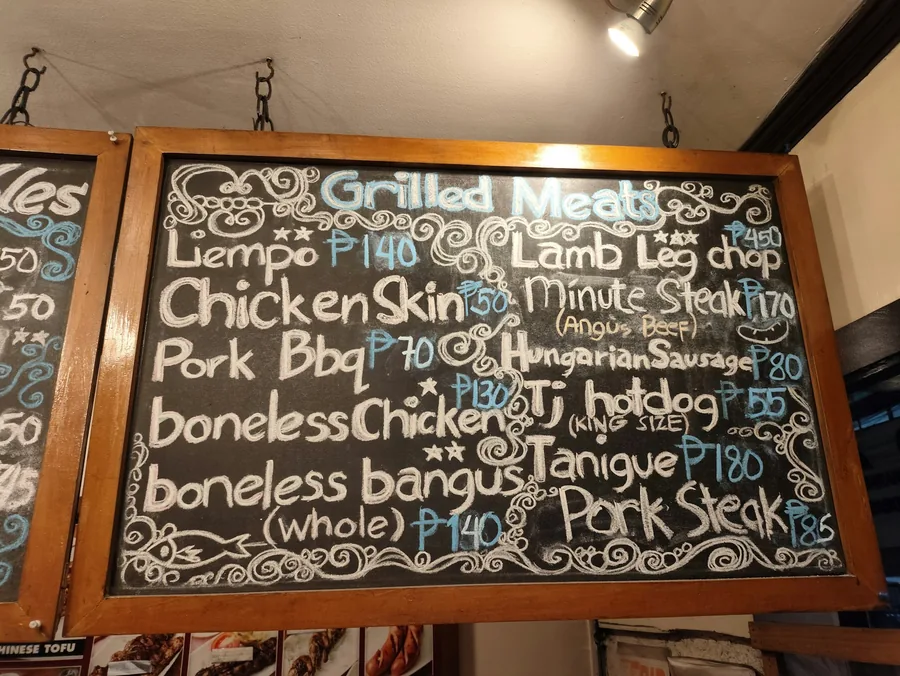 Grilled Meats
Liempo ₱140
Chicken Skin ₱50
Pork Bbq ₱70
boneless Chicken ₱130
boneless bangus
(whole) ₱140
Lamb Leg chop ₱450
Minute Steak ₱170
(Angus Beef)
Hungarian Sausage ₱80
Tj hotdog ₱55
(KING SIZE)
Tanigue ₱180
Pork Steak ₱85
50
50
50
45
HINESE TOFU